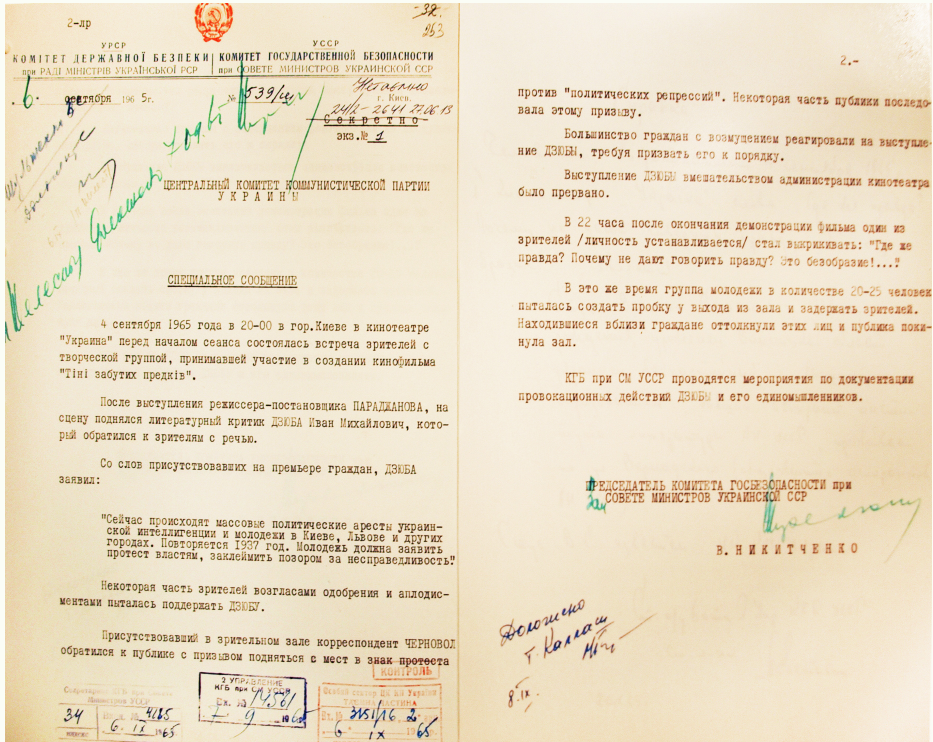 2-лр
32
253
УРСР
КОМІТЕТ ДЕРЖАВНОЇ БЕЗПЕКИ
при РАДІ МІНІСТРІВ УКРАЇНСЬКОЇ РСР
УССР
КОМИТЕТ ГОСУДАРСТВЕННОЙ БЕЗОПАСНОСТИ
при СОВЕТЕ МИНИСТРОВ УКРАИНСКОЙ ССР
6. сентября 1965г.
№ 539/
г. Киев.
24/1-2641 27.06.13
Секретно
экз.№ 1
7 09.65
ЦЕНТРАЛЬНЫЙ КОМИТЕТ КОММУНИСТИЧЕСКОЙ ПАРТИИ
УКРАИНЫ
СПЕЦИАЛЬНОЕ СООБЩЕНИЕ
4 сентября 1965 года в 20-00 в гор.Киеве в кинотеатре
"Украина" перед началом сеанса состоялась встреча зрителей с
творческой группой, принимавшей участие в создании кинофильма
"Тіні забутих предків".
После выступления режиссера-постановщика ПАРАДЖАНОВА, на
сцену поднялся литературный критик ДЗЮБА Иван Михайлович, кото-
рый обратился к зрителям с речью.
Со слов присутствовавших на премьере граждан, ДЗЮБА
заявил:
"Сейчас происходят массовые политические аресты украин-
ской интеллигенции и молодежи в Киеве, Львове и других
городах. Повторяется 1937 год. Молодежь должна заявить
протест властям, заклеймить позором за несправедливость."
Некоторая часть зрителей возгласами одобрения и аплодис-
ментами пыталась поддержать ДЗЮБУ.
Присутствовавший в зрительном зале корреспондент ЧЕРНОВОЛ
обратился к публике с призывом подняться с мест в знак протеста
КОНТРОЛЬ
Секретариат КГБ при Совете
Министров УССР
34
индекс
Вх. № 4125
6. IX 1965
2 УПРАВЛЕНИЕ
КГБ при СМ УССР
Вх. № 14581
7 9 196
Особый сектор ЦК КП України
ЧАСТИНА
Вх. № 3151/16 2
6 IX 1965
2.-
против "политических репрессий". Некоторая часть публики последо-
вала этому призыву.
Большинство граждан с возмущением реагировали на выступле-
ние ДЗЮБЫ, требуя призвать его к порядку.
Выступление ДЗЮБЫ вмешательством администрации кинотеатра
было прервано.
В 22 часа после окончания демонстрации фильма один из
зрителей /личность устанавливается/ стал выкрикивать: "Где же
правда? Почему не дают говорить правду? Это безобразие!..."
В это же время группа молодежи в количестве 20-25 человек
пыталась создать пробку у выхода из зала и задержать зрителей.
Находившиеся вблизи граждане оттолкнули этих лиц и публика поки-
нула зал.
КГБ при СМ УССР проводятся мероприятия по документации
провокационных действий ДЗЮБЫ и его единомышленников.
Зам ПРЕДСЕДАТЕЛЬ КОМИТЕТА ГОСБЕЗОПАСНОСТИ при
СОВЕТЕ МИНИСТРОВ УКРАИНСКОЙ ССР
В.НИКИТЧЕНКО
Доложено
т. Каллаш
8 IX.